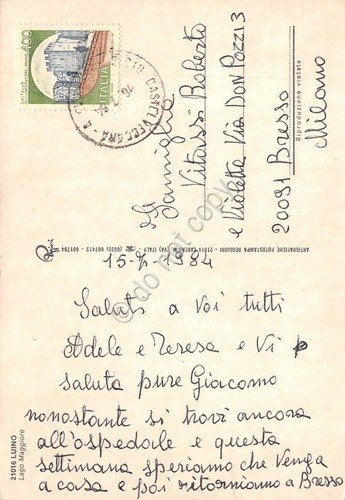 400
CASTELLO DEL MONTE
ITALIA
CASTELVECCANA
Alla
Famiglia
Vitassi Roberto
e Violetta Via Don Pozzi 3
20091 Bresso
Milano
Riproduzione vietata
ARTIGRAFICHE FOTOSTAMPA REGGIORI - 21014 LAVENO M. (VA) ITALY - (0332) 667412 - 601794
15-7-1984
Saluti a Voi tutti
Adele e Teresa e Vi
saluta pure Giacomo
nonostante si trovi ancora
all'ospedale e questa
settimana speriamo che Venga
a casa e poi ritorniamo a Bresso
21016 LUINO
Lago Maggiore
do not copy